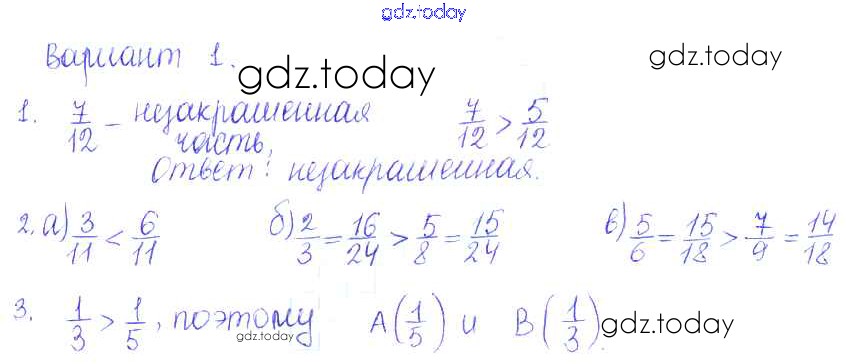 gdz.today
Вариант 1.
gdz.today
gdz.today
1. 7/12 – незакрашенная часть, 7/12 > 5/12
Ответ: незакрашенная.
2. а) 3/11 < 6/11 б) 2/3 = 16/24 > 5/8 = 15/24 в) 5/6 = 15/18 > 7/9 = 14/18
3. 1/3 > 1/5, поэтому A(1/5) и B(1/3).
gdz.today